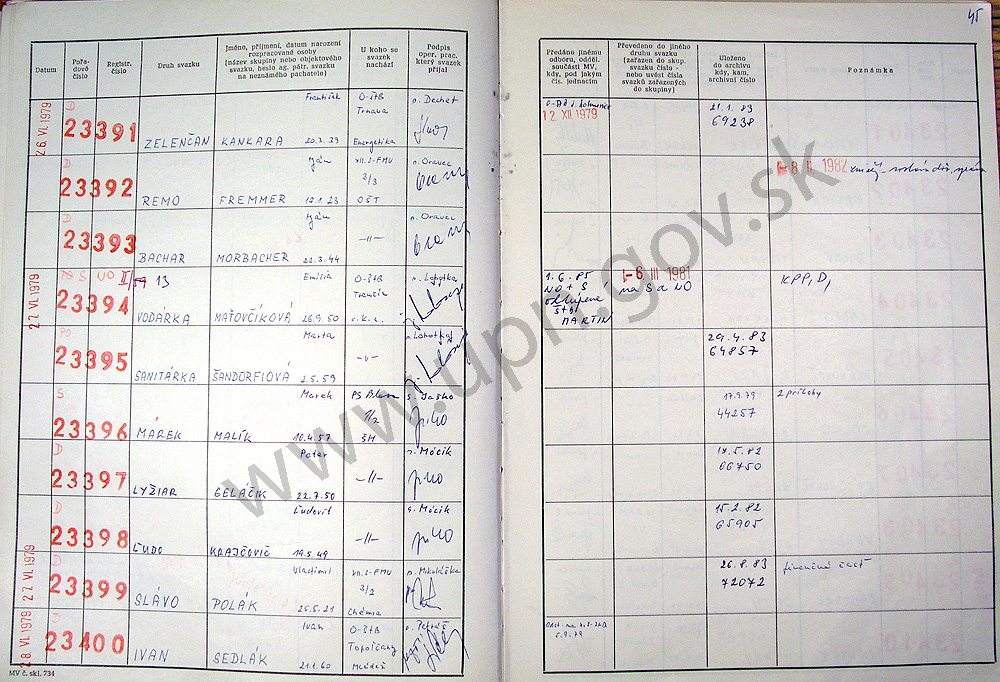 45
Datum
Pořadové číslo
Registr. číslo
Druh svazku
Jméno, příjmení, datum narození rozpracované osoby (název skupiny nebo objektového svazku, heslo ag. pátr. svazku na neznámého pachatele)
U koho se svazek nachází
Podpis oper. prac. který svazek přijal
Předáno jinému odboru, odděl. součásti MV, kdy, pod jakým čís. jednacím
Převedeno do jiného druhu svazku (zařazen do skup. svazku číslo - nebo uvést čísla svazků zařazených do skupiny)
Uloženo do archivu kdy, kam, archivní číslo
Poznámka
26. VI. 1979
D
23391
ZELENČAN
František
KANKARA 20.3.39
O-ŠtB
Trnava
Energetika
n. Dechet
12 XII 1979
21.1.83
69238
D
23392
REMO
Ján
FREMMER 12.1.23
XII.S-FMV
3/3
OŠT
n. Oravec
8. II. 1982
D
23393
BACHAR
Ján
MORBACHER 22.3.44
-II-
n. Oravec
27. VI. 1979
23394
VODÁRKA
Emília
MAŤOVČÍKOVÁ 26.9.50
O-ŠtB
Trenčín
1.6.85
NO + S
MARTIN
6 III 1981
na S a NO
KPP, D,
PO
23395
SANITÁRKA
Marta
ŠANDORFIOVA 2.5.59
-v-
29.4.83
64857
S
23396
MÁREK
Marek
MALÍK 10.4.57
s. Jaško
17.9.79
44257
2 príkohy
D
23397
LYŽIAR
Peter
GELÁČIK 22.7.50
-II-
n. Mócik
17.5.82
66750
D
23398
ĽUDO
Ľudovít
KRAJČOVIČ 19.5.49
-II-
s. Mócik
15.2.82
65905
27. VI. 1979
D
23399
SLÁVO
Vlastimil
POLÁK 25.5.21
XII.S-FMV
3/2
Chémia
n. Mikoláška
26.8.83
72072
finančná časť
28. VI. 1979
23400
IVAN
Ivan
SEDLÁK 21.1.60
O-ŠtB
Topoľčany
Mládež
5.9.79
MV č. skl. 734
www.upn.gov.sk